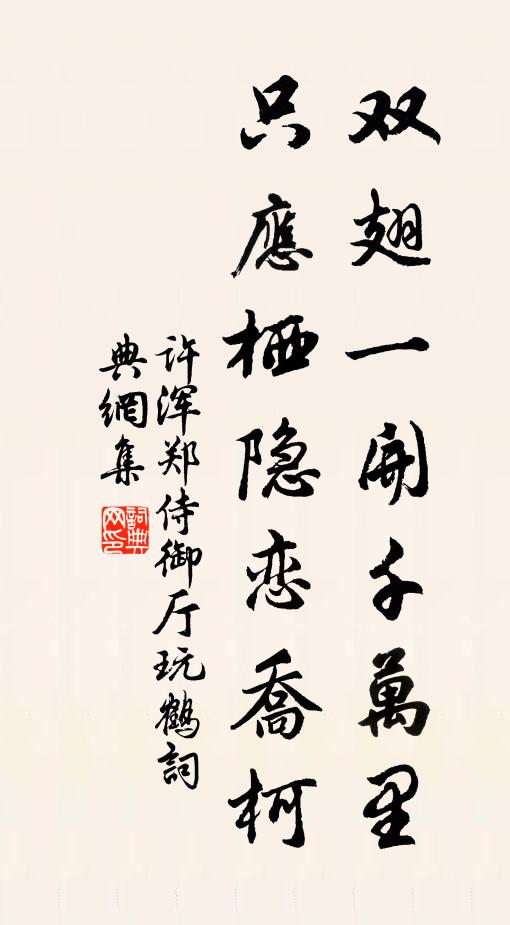 双翅一開千萬里
只應栖隐恋喬柯
许浑郑侍御厅玩鶴詞
典網集
詞典
网印